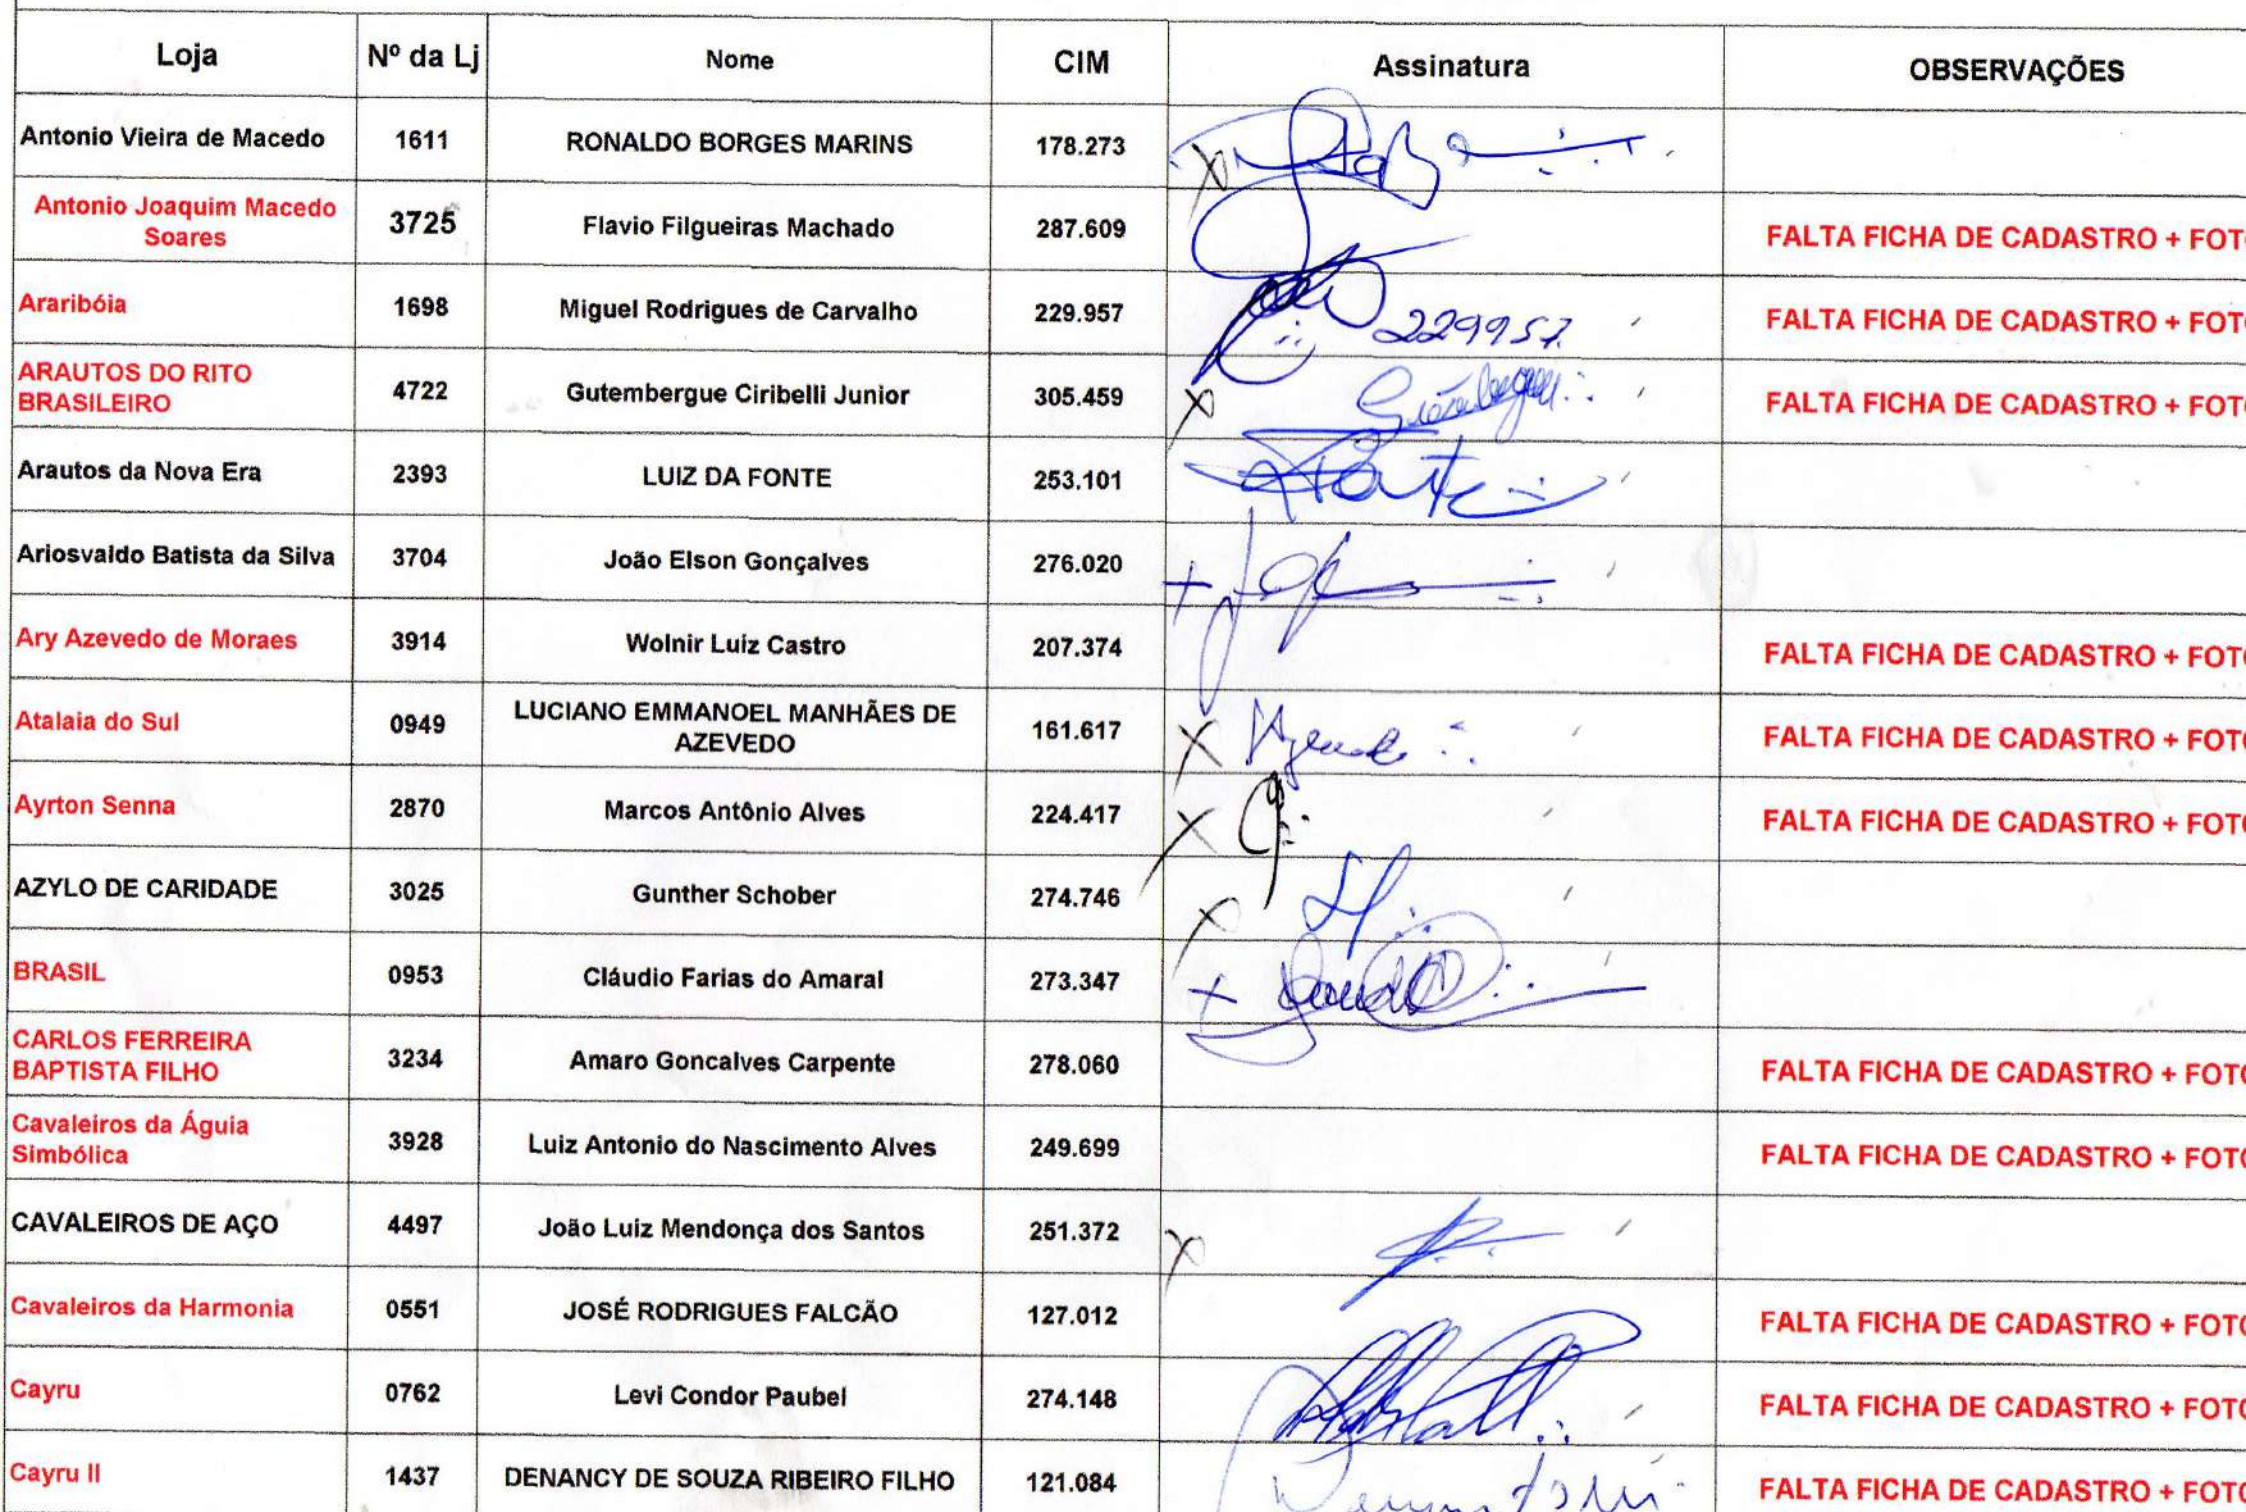 Loja Nº da Lj Nome CIM Assinatura OBSERVAÇÕES
Antonio Vieira de Macedo 1611 RONALDO BORGES MARINS 178.273
Antonio Joaquim Macedo
Soares 3725 Flavio Filgueiras Machado 287.609 FALTA FICHA DE CADASTRO + FOTO
Araribóia 1698 Miguel Rodrigues de Carvalho 229.957 229957 FALTA FICHA DE CADASTRO + FOTO
ARAUTOS DO RITO
BRASILEIRO 4722 Gutembergue Ciribelli Junior 305.459 FALTA FICHA DE CADASTRO + FOTO
Arautos da Nova Era 2393 LUIZ DA FONTE 253.101
Ariosvaldo Batista da Silva 3704 João Elson Gonçalves 276.020
Ary Azevedo de Moraes 3914 Wolnir Luiz Castro 207.374 FALTA FICHA DE CADASTRO + FOTO
Atalaia do Sul 0949 LUCIANO EMMANOEL MANHÃES DE
AZEVEDO 161.617 FALTA FICHA DE CADASTRO + FOTO
Ayrton Senna 2870 Marcos Antônio Alves 224.417 FALTA FICHA DE CADASTRO + FOTO
AZYLO DE CARIDADE 3025 Gunther Schober 274.746
BRASIL 0953 Cláudio Farias do Amaral 273.347
CARLOS FERREIRA
BAPTISTA FILHO 3234 Amaro Goncalves Carpente 278.060 FALTA FICHA DE CADASTRO + FOTO
Cavaleiros da Águia
Simbólica 3928 Luiz Antonio do Nascimento Alves 249.699 FALTA FICHA DE CADASTRO + FOTO
CAVALEIROS DE AÇO 4497 João Luiz Mendonça dos Santos 251.372
Cavaleiros da Harmonia 0551 JOSÉ RODRIGUES FALCÃO 127.012 FALTA FICHA DE CADASTRO + FOTO
Cayru 0762 Levi Condor Paubel 274.148 FALTA FICHA DE CADASTRO + FOTO
Cayru II 1437 DENANCY DE SOUZA RIBEIRO FILHO 121.084 FALTA FICHA DE CADASTRO + FOTO